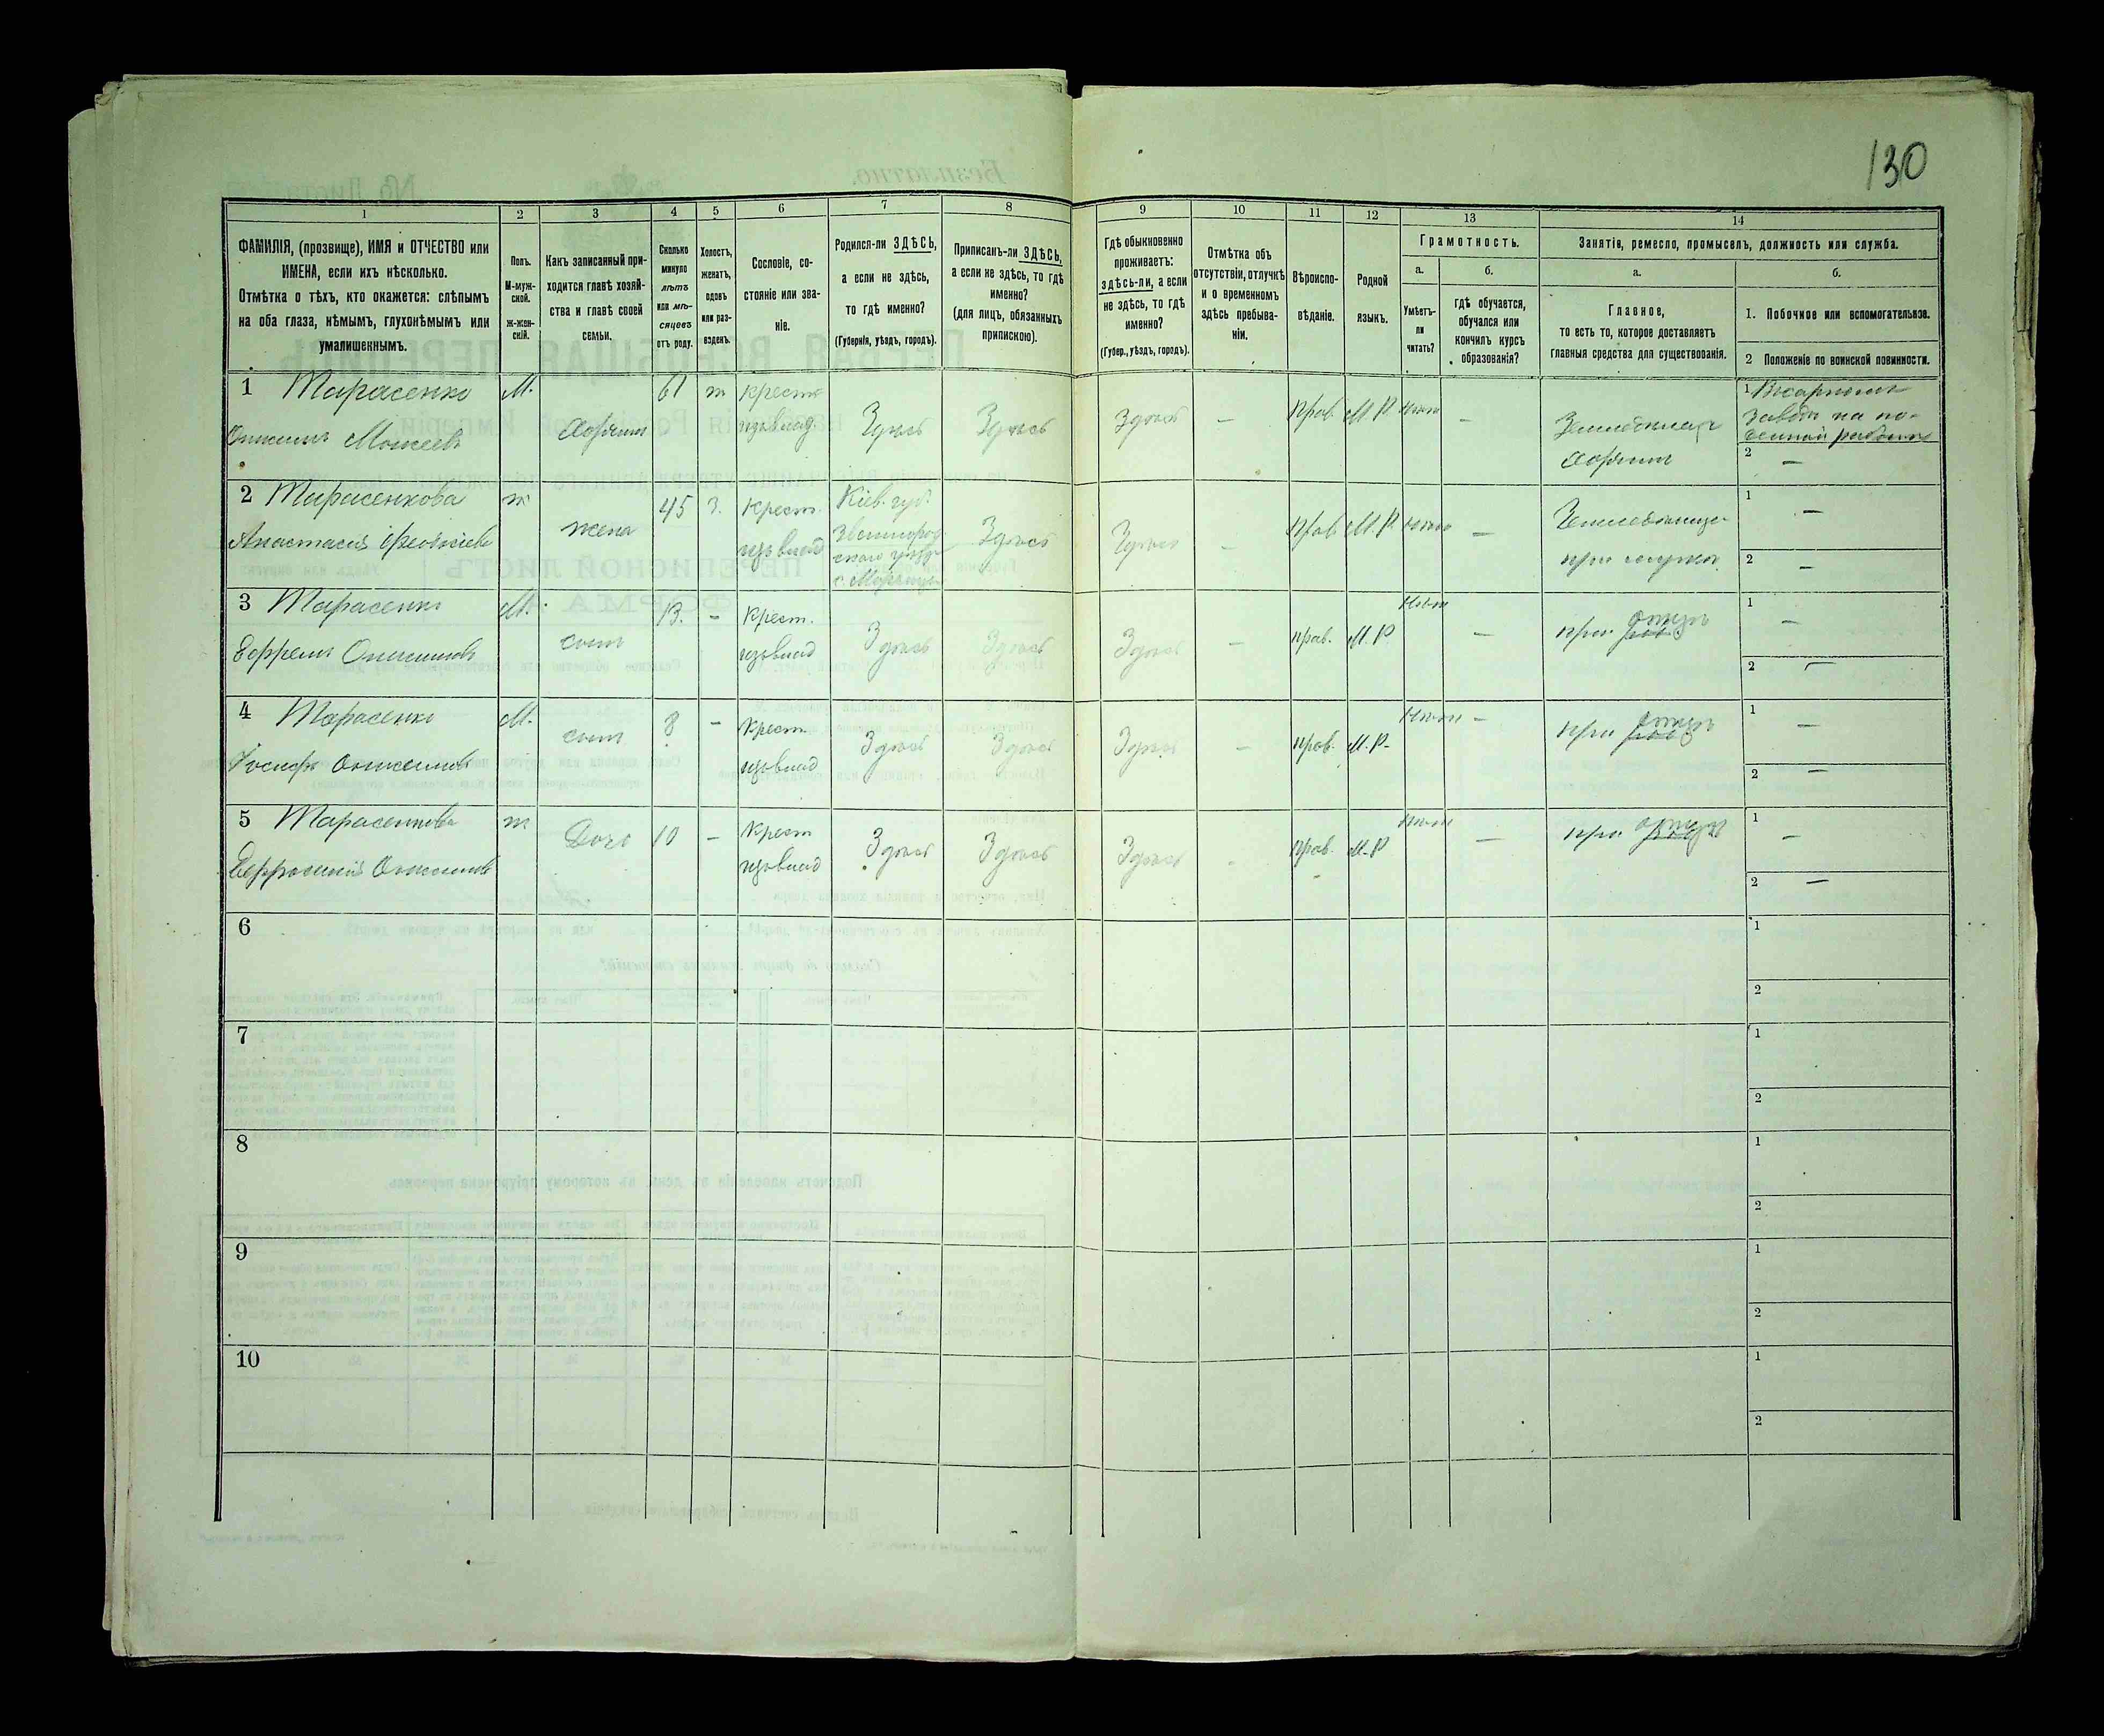 130
1
2
3
4
5
6
7
8
9
10
11
12
13
14
ФАМИЛІЯ, (прозвище), ИМЯ и ОТЧЕСТВО или
ИМЕНА, если ихъ нѣсколько.
Отмѣтка о тѣхъ, кто окажется: слѣпымъ
на оба глаза, нѣмымъ, глухонѣмымъ или
умалишеннымъ.
Полъ.
М-муж-
ской.
Ж-жен-
скій.
Какъ записанный при-
ходится главѣ хозяй-
ства и главѣ своей
семьи.
Сколько
минуло
лѣтъ
или мѣ-
сяцевъ
отъ роду.
Холостъ,
женатъ,
вдовъ
или раз-
веденъ.
Сословіе, со-
стояніе или зва-
ніе.
Родился-ли ЗДѢСЬ,
а если не здѣсь,
то гдѣ именно?
(Губернія, уѣздъ, городъ).
Приписанъ-ли ЗДѢСЬ,
а если не здѣсь, то гдѣ
именно?
(для лицъ, обязанныхъ
припискою).
Гдѣ обыкновенно
проживаетъ:
здѣсь-ли, а если
не здѣсь, то гдѣ
именно?
(Губер., уѣздъ, городъ).
Отмѣтка объ
отсутствіи, отлучкѣ
и о временномъ
здѣсь пребыва-
ніи.
Вѣроиспо-
вѣданіе.
Родной
языкъ.
Грамотность.
а.
Умѣетъ-
ли
читать?
б.
Гдѣ обучается,
обучался или
кончилъ курсъ
образованія?
Занятіе, ремесло, промыселъ, должность или служба.
а.
Главное,
то есть то, которое доставляетъ
главныя средства для существованія.
б.
1. Побочное или вспомогательное.
2 Положеніе по воинской повинности.
1 Тарасенко
Онисимъ Моисеевъ
М.
Хозяинъ
61
ж
крест.
Здѣсь
Здѣсь
Здѣсь
—
прав.
М.Р.
нѣтъ
—
Хозяинъ
1
заводѣ на по-
2 —
2 Тарасенкова
Анастасія
ж
жена
45
З.
Крест.
Кіев. губ.
Звенигород
скаго уѣзд
Здѣсь
Здѣсь
—
прав.
М.Р.
нѣтъ
—
при мужѣ.
1 —
2 —
3 Тарасенко
Ефремъ Онисимовъ
М.
сынъ
13.
-
Крест.
Здѣсь
Здѣсь
Здѣсь
—
прав.
М.Р
Нѣтъ
—
при отцѣ
1 —
2 —
4 Тарасенко
Іосифъ Онисимовъ
М.
сынъ
8
-
Крест.
Здѣсь
Здѣсь
Здѣсь
—
прав.
М.Р-
Нѣтъ
—
при отцѣ
1 —
2 —
5 Тарасенкова
Ефросинія Онисимов
ж
Дочь
10
-
Крест
Здѣсь
Здѣсь
Здѣсь
-
прав.
М.Р
Нѣтъ
—
при отцѣ
1 —
2 —
6
1
2
7
1
2
8
1
2
9
1
2
10
1
2